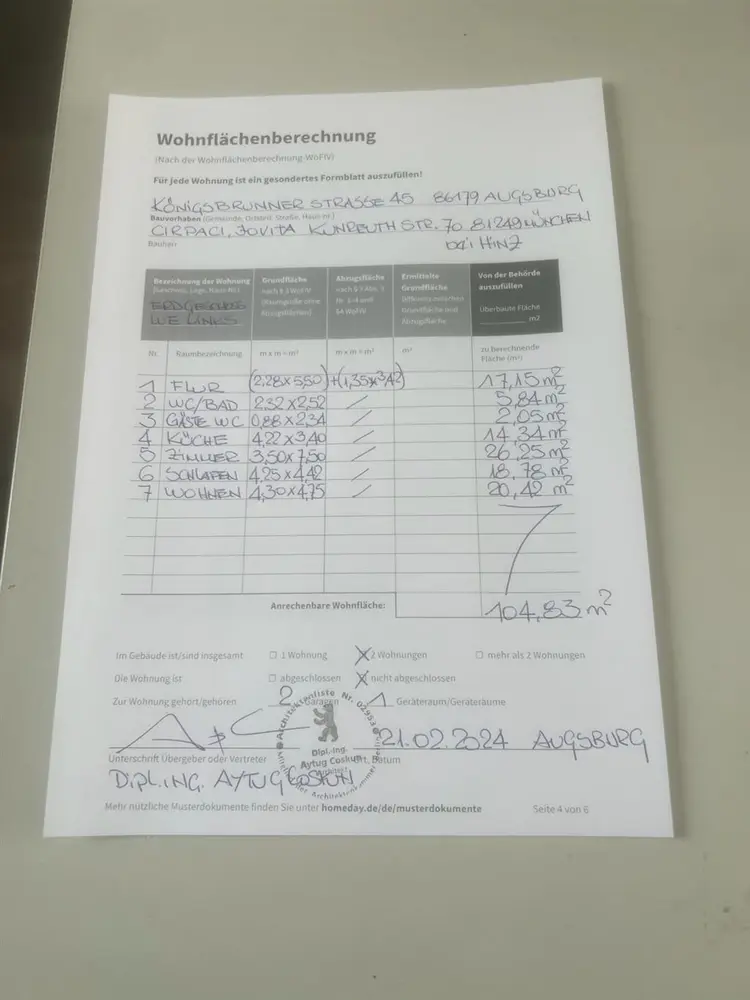 Wohnflächenberechnung
(Nach der Wohnflächenberechnung-WoFlV)
Für jede Wohnung ist ein gesondertes Formblatt auszufüllen!
KÖNIGSBRUNNER STRASSE 45 86179 AUGSBURG
Bauvorhaben (Gemeinde, Ortsteil, Straße, Haus-nr.)
CIRPACI, JOVITA KUNREUTH STR. 70 81249 MÜNCHEN
Bauherr
bei HINZ
Bezeichnung der Wohnung Grundfläche Abzugsfläche Ermittelte Grundfläche Von der Behörde auszufüllen
(Geschoss, Lage, Haus-Nr.) nach § 3 WoFlV Differenz zwischen Grundfläche und Abzugsfläche Überbaute Fläche
ERDGESCHOSS
WE LINKS
______ m2
Nr. Raumbezeichnung m x m = m² m x m = m² m² zu berechnende Fläche (m²)
1 FLUR (2,28x5,50)+(1,35x3,42) 17,15 m²
2 WC/BAD 2,32x2,52 / 5,84 m²
3 GÄSTE WC 0,88x2,34 / 2,05 m²
4 KÜCHE 4,22x3,40 / 14,34 m²
5 ZIMMER 3,50x7,50 / 26,25 m²
6 SCHLAFEN 4,25x4,42 / 18,78 m²
7 WOHNEN 4,30x4,75 / 20,42 m²
Anrechenbare Wohnfläche: 104,83 m²
Im Gebäude ist/sind insgesamt ☐ 1 Wohnung ☒ 2 Wohnungen ☐ mehr als 2 Wohnungen
Die Wohnung ist ☐ abgeschlossen ☒ nicht abgeschlossen
Zur Wohnung gehört/gehören 2 Garagen 1 Geräteraum/Geräteräume
Architektenliste Nr. 02953
Dipl.-Ing.
Aytug Coskun
Architekt
21.02.2024 AUGSBURG
Unterschrift Übergeber oder Vertreter Ort, Datum
DIPL.ING. AYTUG COSKUN
Mehr nützliche Musterdokumente finden Sie unter homeday.de/de/musterdokumente Seite 4 von 6